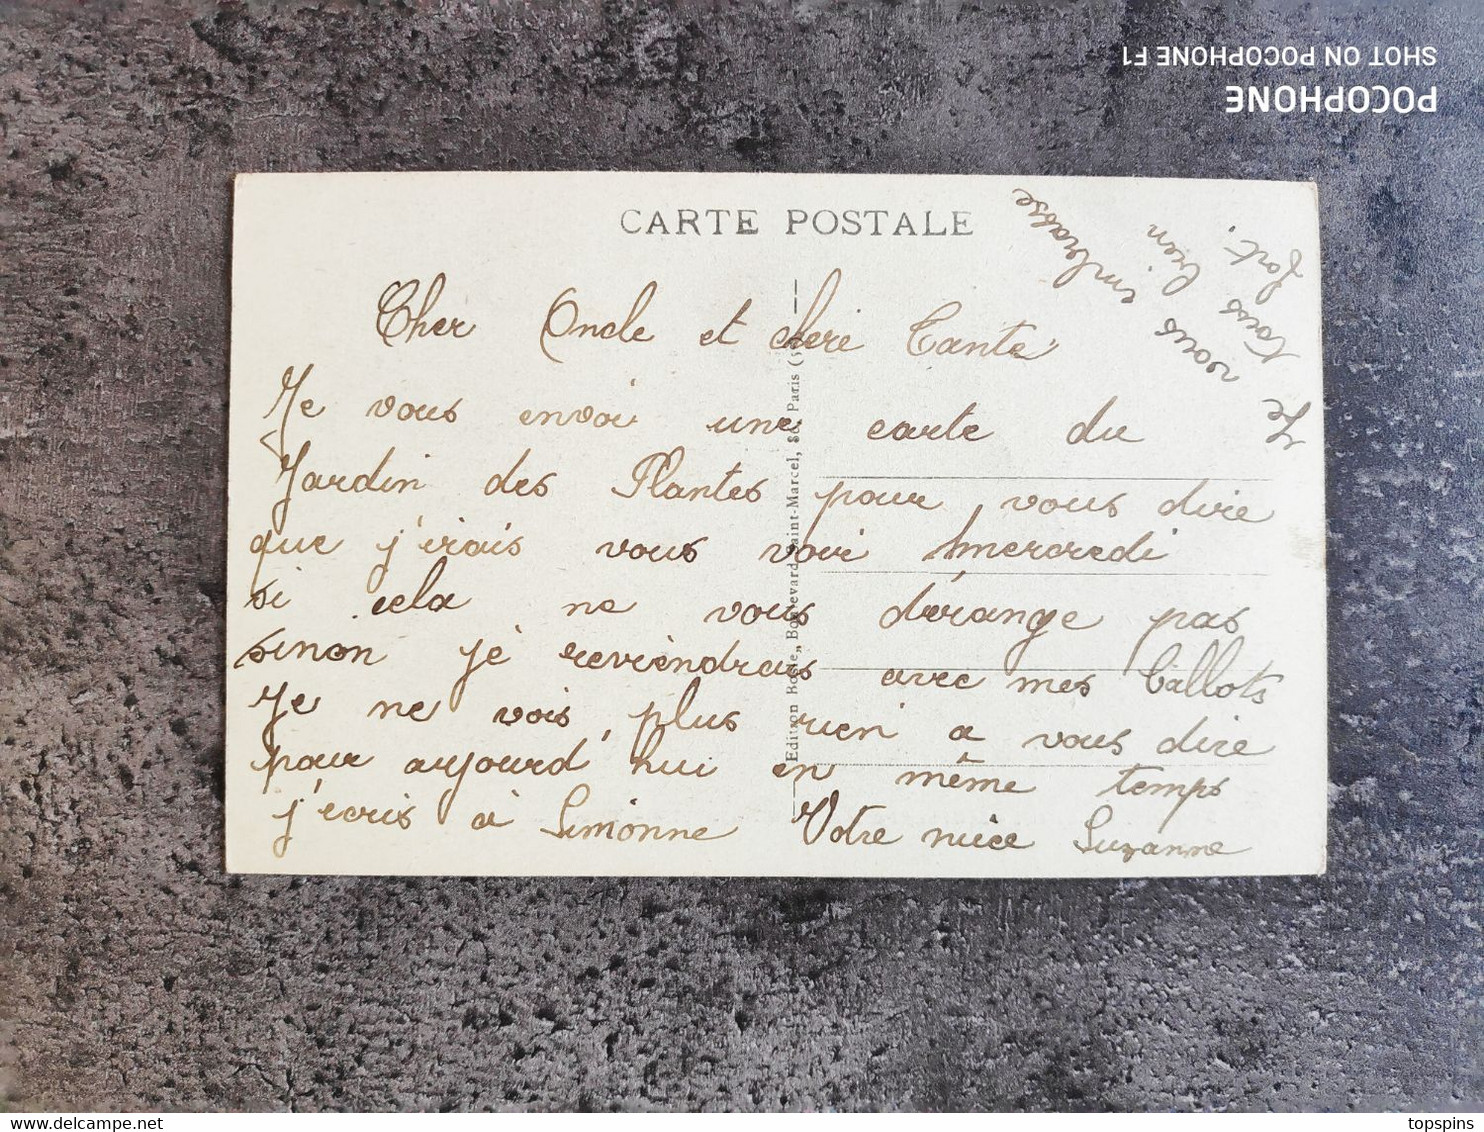 SHOT ON POCOPHONE F1
POCOPHONE
CARTE POSTALE
Cher Oncle et cheri Tante
Je vous envoi une carte du
Jardin des Plantes pour vous dire
que j'irais vous voir mercredi
si cela ne vous dérange pas
sinon je reviendrais avec mes
Je ne vois plus rien a vous dire
pour aujourd'hui en même temps
j'ecris à Simonne Votre nièce Suzanne
Je vous embrasse
tous bien
fort.
Boulevard Saint-Marcel, Paris
topspins